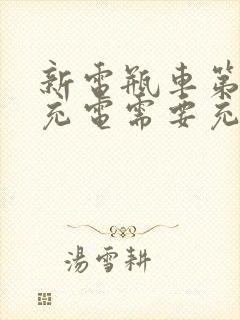 新電瓶車第
充電需要充
湯雪耕